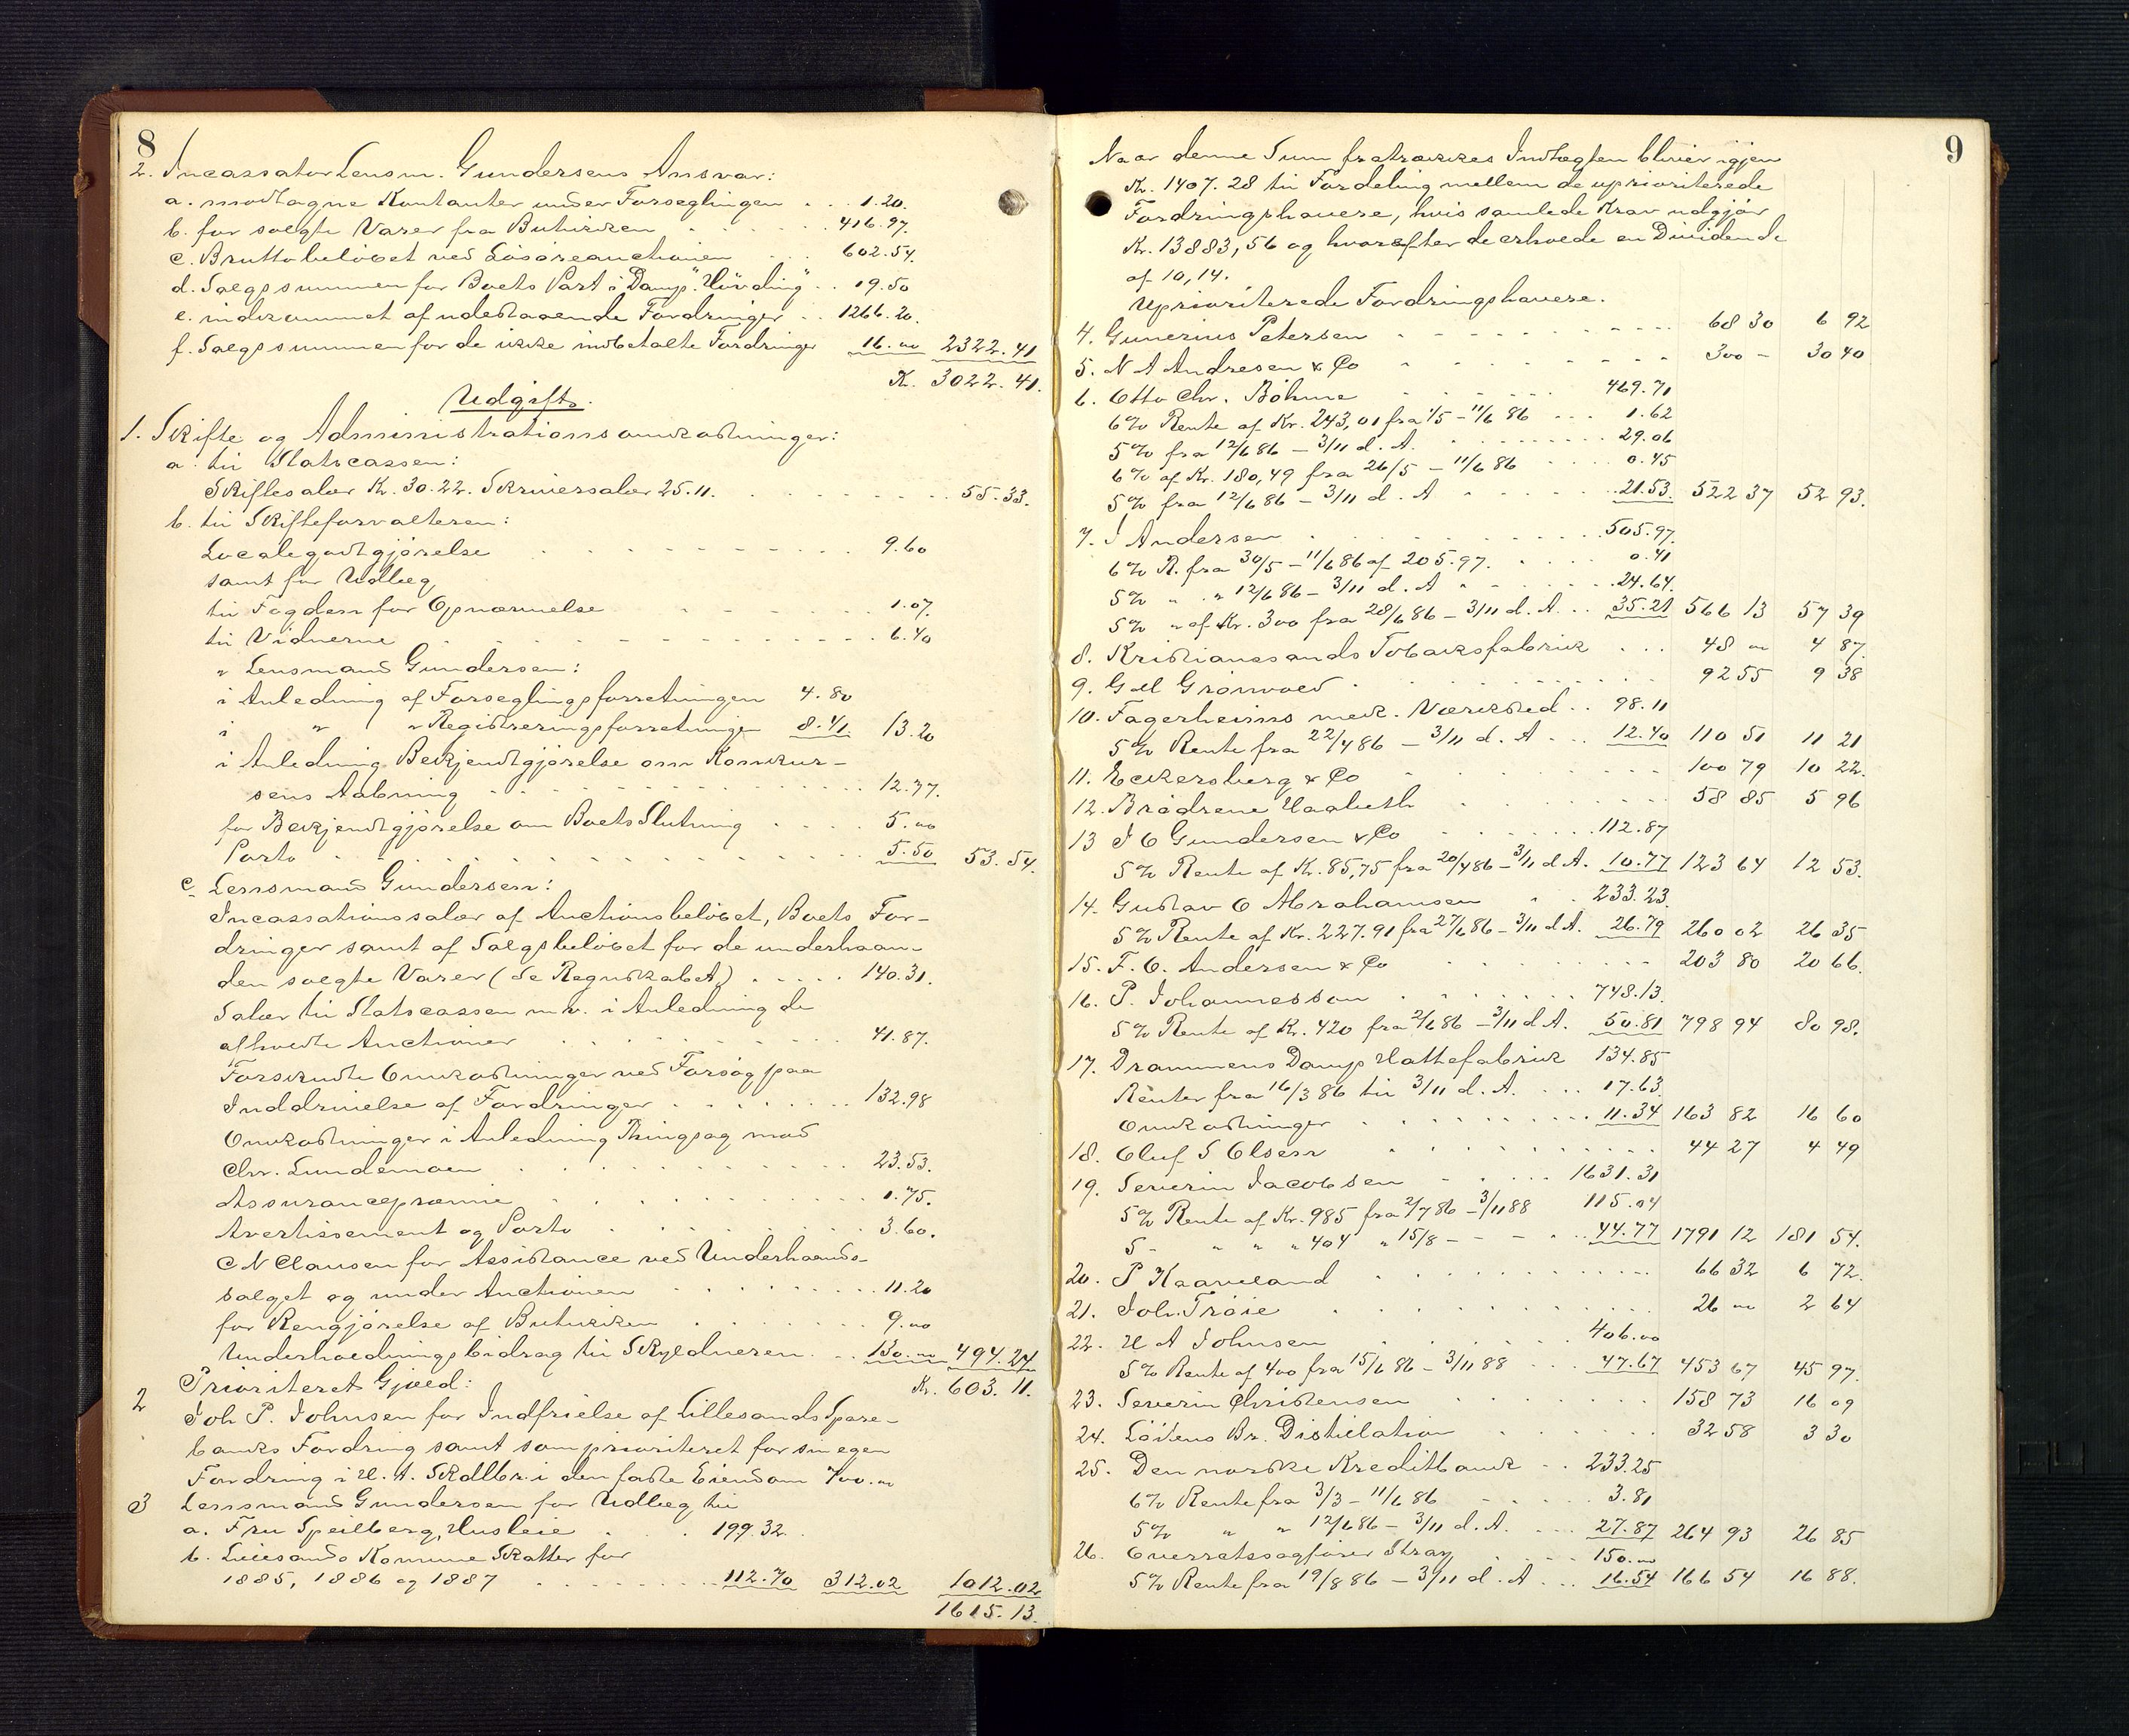 8
2. Incassator Lensm. Gundersens Ansvar:
a. modtagne Kontanter under Forseglingen . . . 1.20.
b. for solgte Varer fra Butikken . . . 416.97.
c. Bruttobeløbet ved Løsøreauctionen . . . 602.54.
d. Salgssummen for Boets Part i Damp. "Hövding" . . 19.50
e. inderommet af udestaaende Fordringer . . 1266.20.
f. Salgssummen for de ikke indbetalte Fordringer 16.00 2322.41
Kr. 3022.41.
Udgift.
1. Skifte og Administrationsomkostninger:
a. til Statscassen:
Skiftesalær Kr. 30.22. Skriversalær 25.11. . . . 55.33.
b. til Skifteforvalteren:
Localegodtgjørelse . . . 9.60
samt for Udlæg
til Fogden for Opnævnelse . . . 1.07.
til Vidnerne . . . 6.40
" Lensmand Gundersen:
i Anledning af Forseglingsforretningen 4.80
i " " Registreringsforretningen 8.41. 13.20
i Anledning Bekjendtgjørelse om Konkur-
sens Aabning . . . 12.77.
for Bekjendtgjørelse om Boets Slutning . . . 5.00
Porto . . . 5.50 53.54.
c. Lensmand Gundersen:
Incassationssalær af Auctionsbeløbet, Boets For-
dringer samt af Salgsbeløbet for de underhaan-
den solgte Varer (se Regnskabet) . . . 140.31.
Salær til Statscassen m.v. i Anledning de
afholdte Auctioner . . . 41.87.
Forskudte Omkostninger ved Forsøg paa
Inddrivelse af Fordringer . . . 132.98
Omkostninger i Anledning Thingsag mod
Chr. Lundemoen . . . 23.53.
Assurancepræmie . . . 1.75.
Avertissement og Porto . . . 3.60.
C N Clausen for Assistance ved Underhaands-
salget og under Auctionen . . . 11.20
for Rengjørelse af Butikken . . . 9.00
Underholdningsbidrag til Skyldneren . . 130.00 494.24
Kr. 603.11.
2 Prioriteret Gjæld:
Joh P. Johnsen for Indfrielse af Lillesands Spare-
banks Fordring samt som prioriteret for sin egen
Fordring i H. A. Skdlbr. i den faste Eiendom 700.00
3 Lensmand Gundersen for Udlæg til
a. Fru Speilberg, Husleie . . . 199.32.
b. Lillesands Komune Skatter for
1885, 1886 og 1887 . . . 112.70 312.02 1012.02
1615.13.
9
Naar denne Sum fratrækkes Indtægten bliver igjen
Kr. 1407.28 til Fordeling mellem de uprioriterede
Fordringshavere, hvis samlede Krav udgjør
Kr. 13883,56 og hvorefter de erholde en Dividende
af 10,14.
Uprioriterede Fordringshavere.
4. Gunerius Petersen . . . 68 30 6 92
5. N A Andresen & Co . . . 300 - 30 40
6. Otto Chr. Böhme . . . 469.71
6% Rente af Kr. 243,01 fra 1/5 - 11/6 86 . . . 1.62
5% fra 12/6 86 - 3/11 d. A. . . . 29.06
6% af Kr. 180,49 fra 26/5 - 11/6 86 . . . 0.45
5% fra 12/6 86 - 3/11 d. A . . . 21.53. 522 37 52 93.
7. J Andersen . . . 505.97.
6% R. fra 30/5 - 11/6 86 af 205.97. . . . 0.41
5% " " 12/6 86 - 3/11 d. A . . . 24.64.
5% " af Kr. 300 fra 28/6 86 - 3/11 d. A. . . 35.21 566 13 57 39
8. Kristianssands Tobaksfabrik . . . 48 00 4 87.
9. G H Grönvold . . . 92 55 9 38
10. Fagerheims mek. Værksted . . 98.11
5% Rente fra 22/4 86 - 3/11 d. A . . . 12.40 110 51 11 21
11. Eckersberg & Co . . . 100 79 10 22.
12. Brødrene Haabeth . . . 58 85 5 96
13 J C Gundersen & Co . . . 112.87
5% Rente af Kr. 85,75 fra 20/4 86 - 3/11 d A. 10.77 123 64 12 53.
14. Gustav O Abrahamsen . . . 233.23.
5% Rente af Kr. 227.91 fra 27/6 86 - 3/11 d A. 26.79 260 02 26 35
15. F. O. Andersen & Co . . . 203 80 20 66.
16. P. Johannesson . . . 748.13.
5% Rente af Kr. 420 fra 2/6 86 - 3/11 d A. 50.81 798 94 80 98.
17. Drammens Damp Hattefabrik 134.85
Renter fra 16/3 86 til 3/11 d. A. . . . 17.63.
Omkostninger . . . 11.34 163 82 16 60
18. Oluf S Olsen . . . 44 27 4 49
19. Severin Jacobsen . . . 1631.31
5% Rente af Kr. 985 fra 2/7 86 - 3/11 88 115.04
5 - " " " 404 " 15/8 - - - . . 44.77 1791 12 181 54.
20. P Kaaveland . . . 66 32 6 72.
21. Joh. Tröie . . . 26 00 2 64
22. H A Johnsen . . . 406.00
5% Rente af 400 fra 15/6 86 - 3/11 88 . . . 47.67 453 67 45 97.
23. Severin Christensen . . . 158 73 16 09
24. Löitens Br. Distillation . . . 32 58 3 30
25. Den norske Kreditbank . . 233.25
6% Rente fra 3/3 - 11/6 86 . . . 3.81
5% " " 12/6 86 - 3/11 d. A. . . . 27.87 264 93 26 85
26. Overretssagfører Stray . . . 150.00
5% Rente fra 19/8 86 - 3/11 d. A . . . 16.54 166 54 16 88.